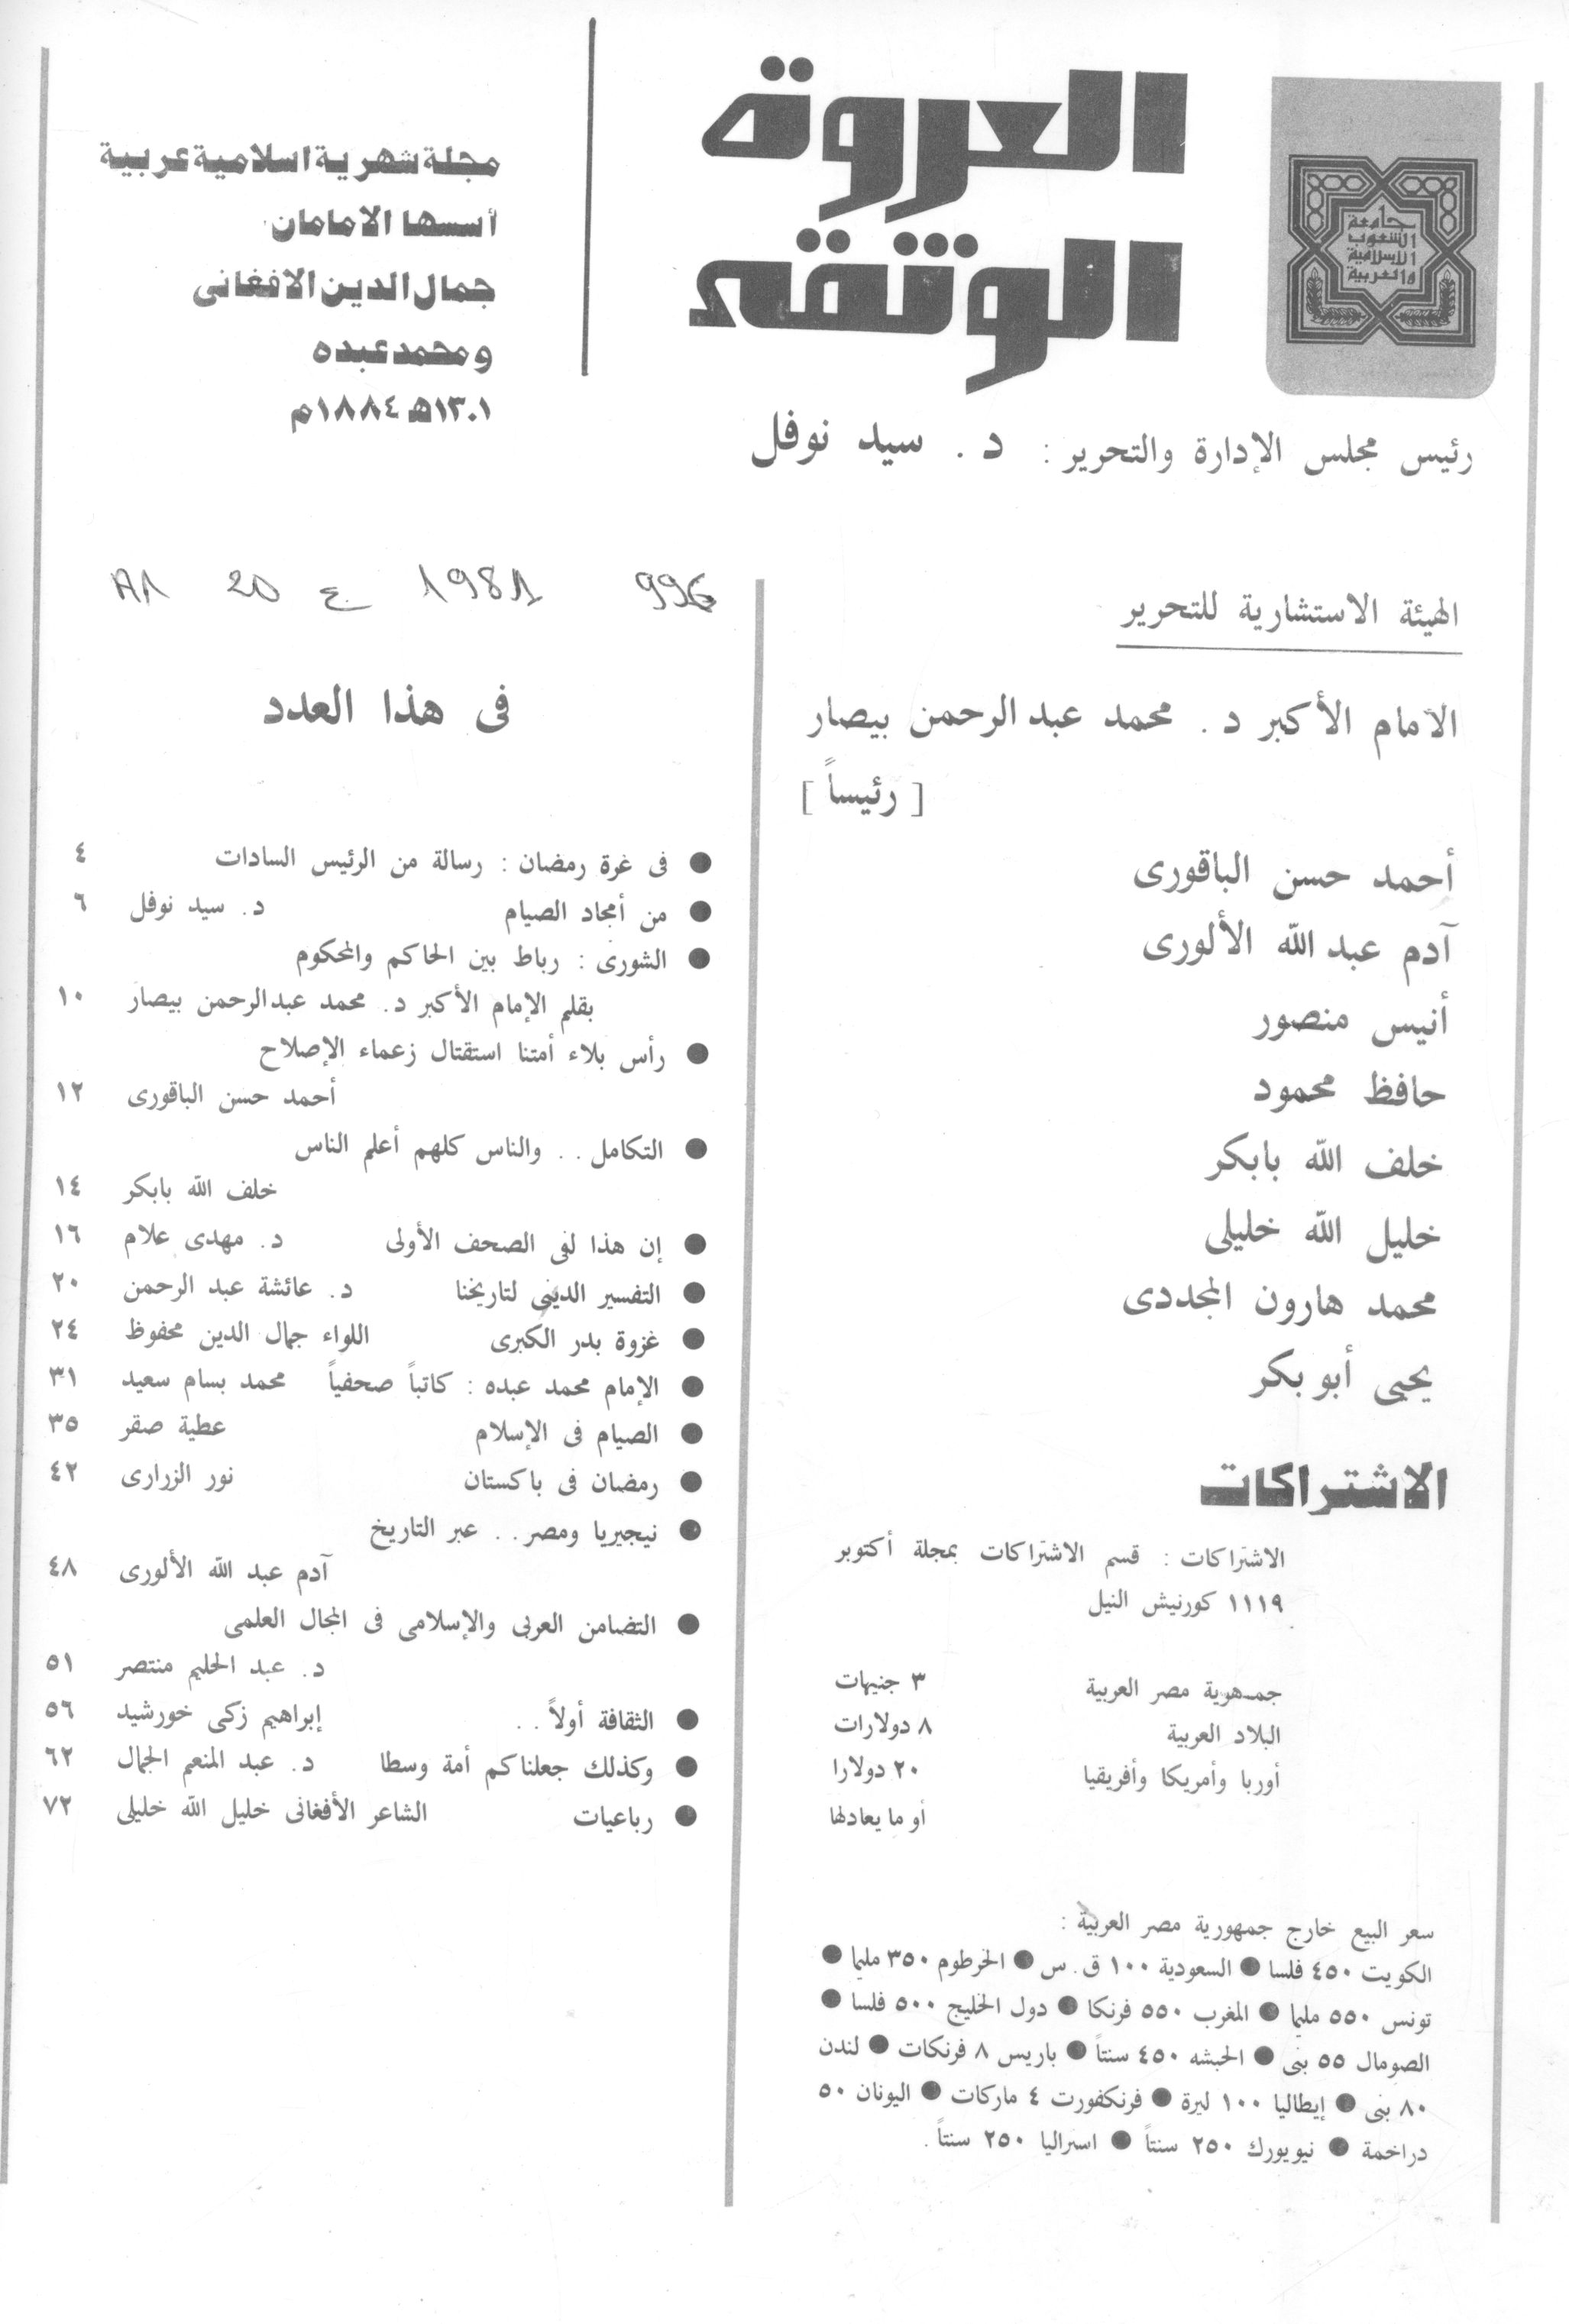 جامعة
الشعوب
الإسلامية
والعربية
العروة
الوثقى
مجلة شهرية اسلامية عربية
أسسها الامامان
جمال الدين الافغانى
ومحمد عبده
١٣٠١هـ ١٨٨٤م
رئيس مجلس الإدارة والتحرير : د . سيد نوفل
الهيئة الاستشارية للتحرير
الامام الأكبر د . محمد عبد الرحمن بيصار
[ رئيساً ]
أحمد حسن الباقورى
آدم عبد الله الألورى
أنيس منصور
حافظ محمود
خلف الله بابكر
خليل الله خليلى
محمد هارون المجددى
يحيى أبو بكر
الاشتراكات
الاشتراكات : قسم الاشتراكات بمجلة أكتوبر
١١١٩ كورنيش النيل
جمهورية مصر العربية ٣ جنيهات
البلاد العربية ٨ دولارات
أوربا وأمريكا وأفريقيا ٢٠ دولارا
أو ما يعادلها
سعر البيع خارج جمهورية مصر العربية :
الكويت ٤٥٠ فلسا ● السعودية ١٠٠ ق . س ● الخرطوم ٣٥٠ مليما ●
تونس ٥٥٠ مليما ● المغرب ٥٥٠ فرنكا ● دول الخليج ٥٠٠ فلسا ●
الصومال ٥٥ بنى ● الحبشه ٤٥٠ سنتاً ● باريس ٨ فرنكات ● لندن
٨٠ بنى ● إيطاليا ١٠٠ ليرة ● فرنكفورت ٤ ماركات ● اليونان ٥٠
دراخمة ● نيويورك ٢٥٠ سنتاً ● استراليا ٢٥٠ سنتاً .
20 ع 1981 996
فى هذا العدد
● فى غرة رمضان : رسالة من الرئيس السادات ٤
● من أمجاد الصيام د. سيد نوفل ٦
● الشورى : رباط بين الحاكم والمحكوم
بقلم الإمام الأكبر د. محمد عبدالرحمن بيصار ١٠
● رأس بلاء أمتنا استقتال زعماء الإصلاح
أحمد حسن الباقورى ١٢
● التكامل . . والناس كلهم أعلم الناس
خلف الله بابكر ١٤
● إن هذا لفى الصحف الأولى د. مهدى علام ١٦
● التفسير الدينى لتاريخنا د. عائشة عبد الرحمن ٢٠
● غزوة بدر الكبرى اللواء جمال الدين محفوظ ٢٤
● الإمام محمد عبده : كاتباً صحفياً محمد بسام سعيد ٣١
● الصيام فى الإسلام عطية صقر ٣٥
● رمضان فى باكستان نور الزرارى ٤٢
● نيجيريا ومصر . . عبر التاريخ
آدم عبد الله الألورى ٤٨
● التضامن العربى والإسلامى فى المجال العلمى
د. عبد الحليم منتصر ٥١
● الثقافة أولاً . . إبراهيم زكى خورشيد ٥٦
● وكذلك جعلناكم أمة وسطا د. عبد المنعم الجمال ٦٢
● رباعيات الشاعر الأفغانى خليل الله خليلى ٧٢